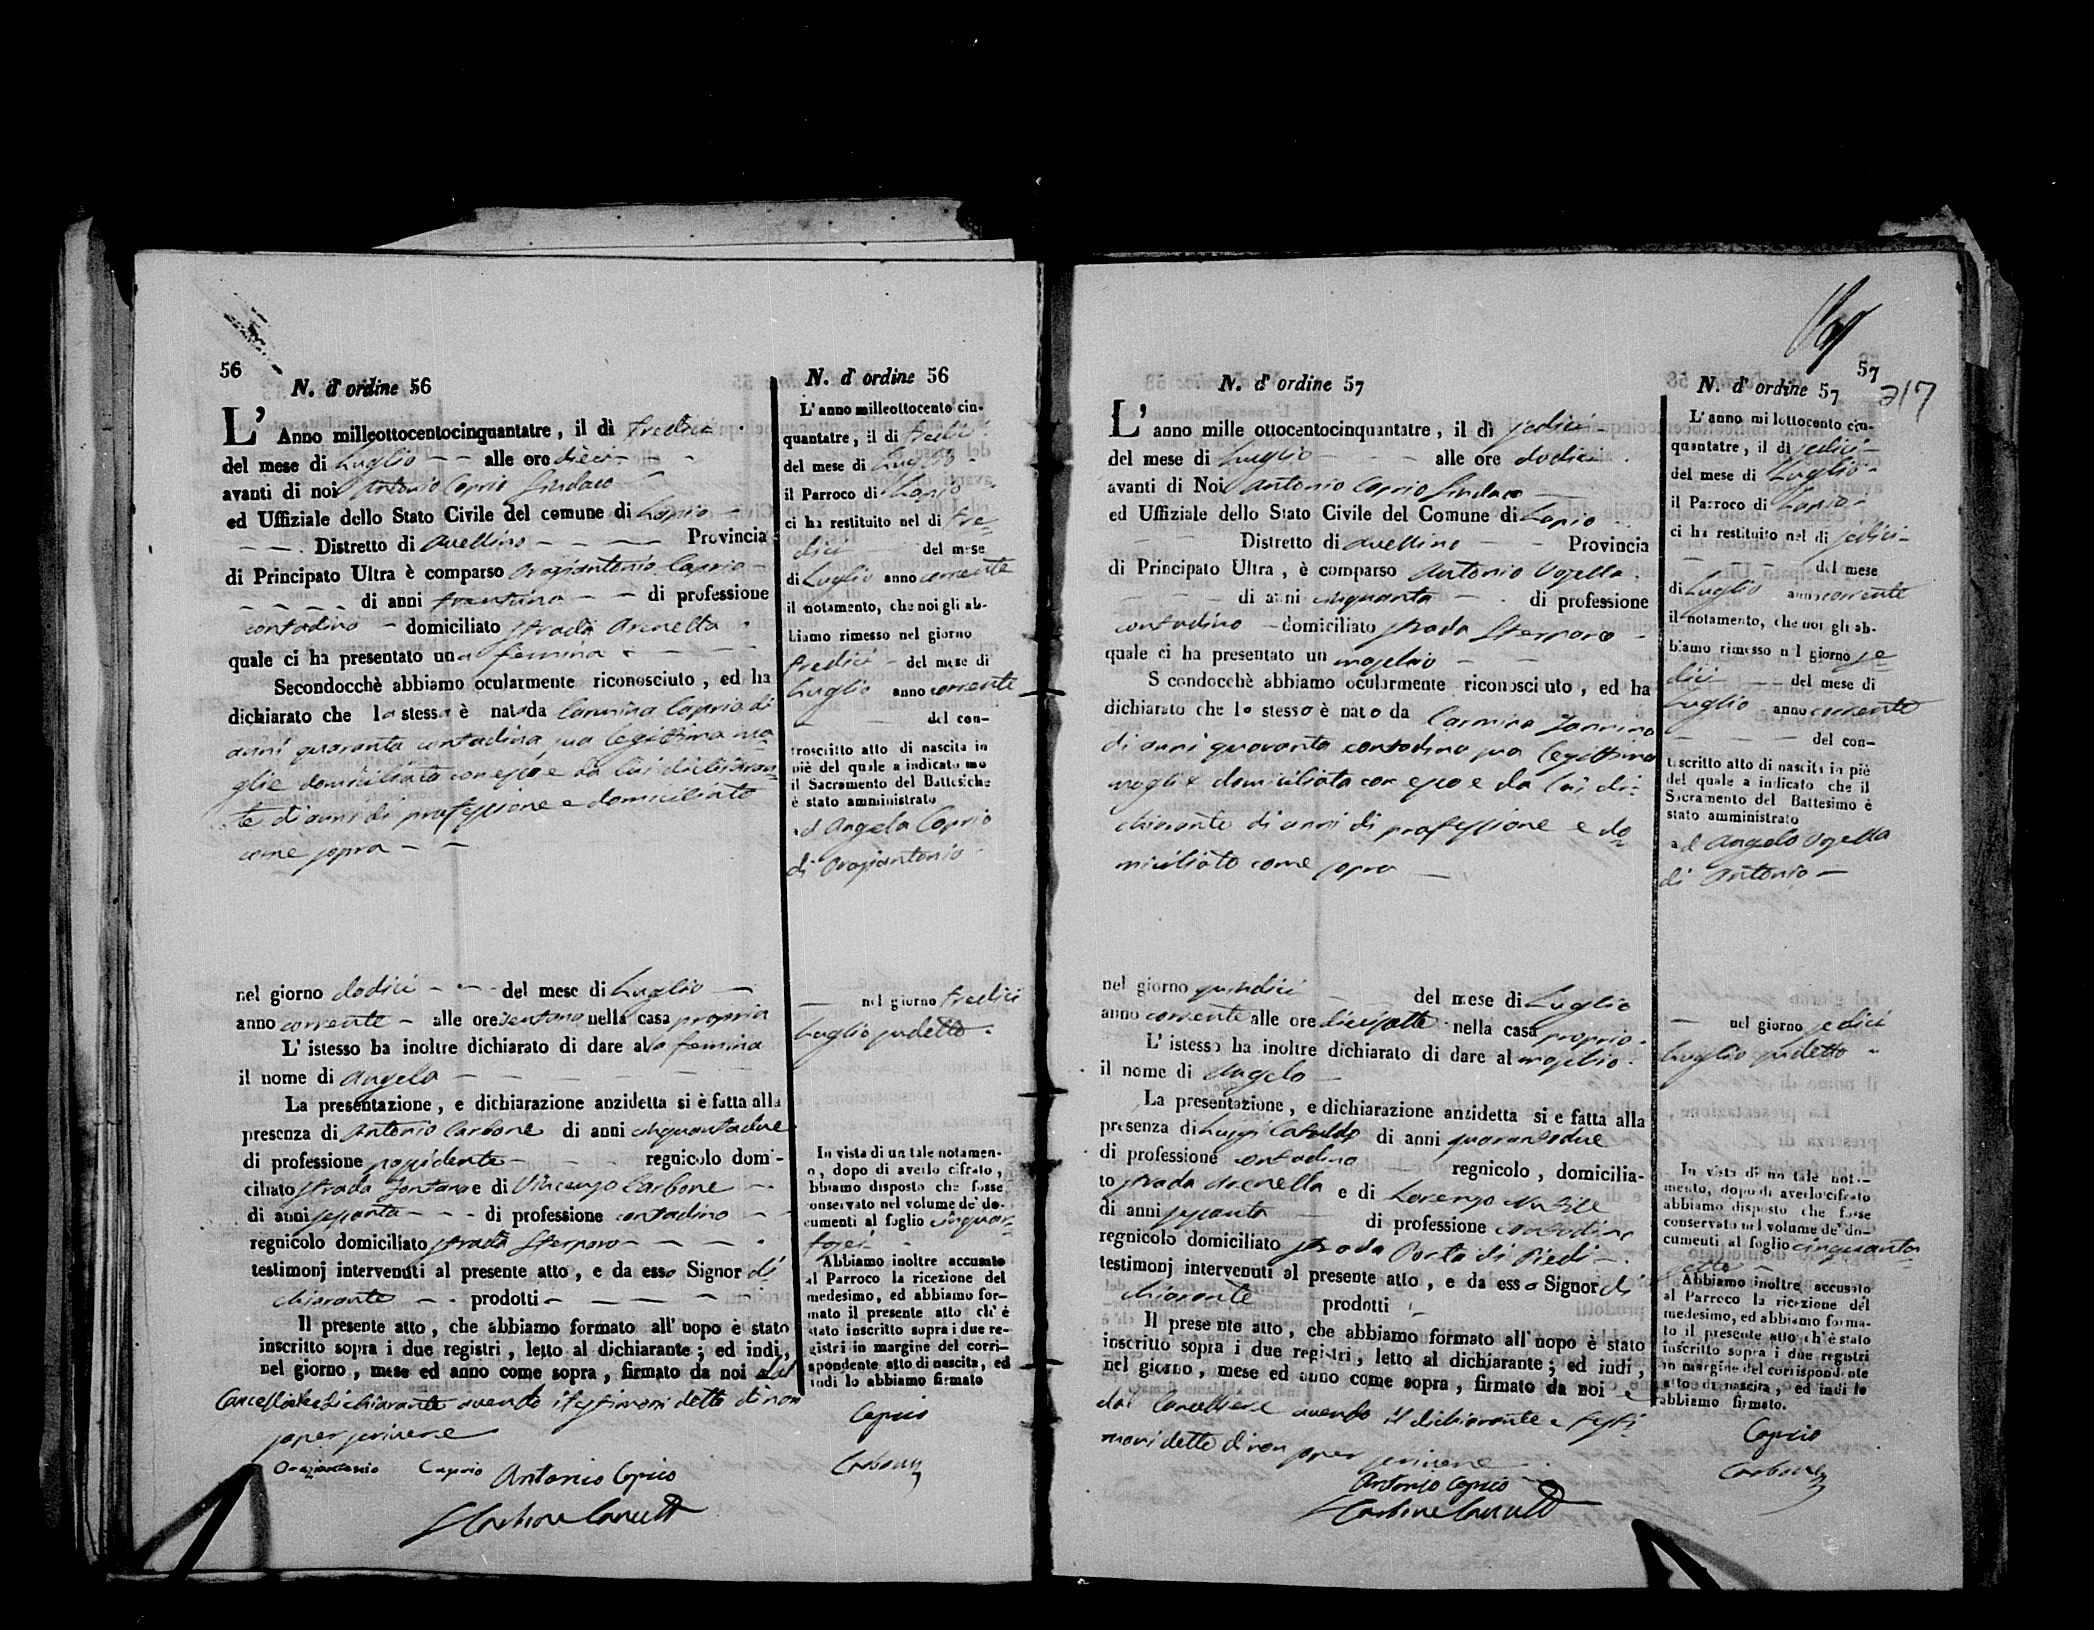 56
N. d' ordine 56
L' Anno milleottocentocinquantatre, il dì tredici
del mese di Luglio alle ore dieci
avanti di noi Antonio Caprio Sindaco
ed Uffiziale dello Stato Civile del comune di Lapio
Distretto di Avellino Provincia
di Principato Ultra è comparso Oraziantonio Caprio
di anni trentuno di professione
contadino domiciliato strada Arenella
quale ci ha presentato una femina
Secondocchè abbiamo ocularmente riconosciuto, ed ha
dichiarato che la stessa è nata da Carmina Caprio di
anni quaranta contadina sua legittima mo=
glie domiciliata con esso e da lui dichiaran=
te di anni di professione e domiciliato
come sopra
nel giorno dodici del mese di Luglio
anno corrente alle ore ventuno nella casa propria
L' istesso ha inoltre dichiarato di dare alla femina
il nome di Angela
La presentazione, e dichiarazione anzidetta si è fatta alla
presenza di Antonio Carbone di anni cinquantadue
di professione possidente regnicolo domi-
ciliato strada Fontana e di Vincenzo Carbone
di anni sessanta di professione contadino
regnicolo domiciliato strada Sterparo
testimonj intervenuti al presente atto, e da esso Signor di=
chiarante prodotti
Il presente atto, che abbiamo formato all' uopo è stato
inscritto sopra i due registri, letto al dichiarante; ed indi,
nel giorno, mese ed anno come sopra, firmato da noi dal
Cancelliere e dichiarante avendo i testimoni detto di non
saper scrivere
Oraziantonio Caprio Antonio Caprio
Carbone Cancell
N. d' ordine 56
L' anno milleottocento cin-
quantatre, il dì tredici
del mese di Luglio
il Parroco di Lapio
ci ha restituito nel dì tre=
dici del mese
di Luglio anno corrente
il notamento, che noi gli ab-
biamo rimesso nel giorno
tredici del mese di
Luglio anno corrente
del con-
troscitto atto di nascita in
piè del quale a indicato mo
il Sacramento del Battesiche
è stato amministrato
ad Angela Caprio
di Oraziantonio
nel giorno tredici
Luglio sudetto
In vista di un tale notamen-
o, dopo di averlo cifrato,
bbiamo disposto che fosse
onservato nel volume de' do-
cumenti al foglio cinquan=
tasei
Abbiamo inoltre accusato
al Parroco la ricezione del
medesimo, ed abbiamo for-
mato il presente atto ch' è
stato inscritto sopra i due re-
gistri in margine del corri-
spondente atto di nascita, ed
indi lo abbiamo firmato
Caprio
Carbone
57
217
N. d' ordine 57
L' anno mille ottocentocinquantatre, il dì sedici
del mese di Luglio alle ore dodici
avanti di Noi Antonio Caprio Sindaco
ed Uffiziale dello Stato Civile del Comune di Lapio
Distretto di Avellino Provincia
di Principato Ultra, è comparso Antonio Vozella
di anni cinquanta di professione
contadino domiciliato strada Sterparo
quale ci ha presentato un maschio
S condocchè abbiamo ocularmente riconosciuto, ed ha
dichiarato che lo stesso è nato da Carmina Iannino
di anni quaranta contadina sua legittima
moglie domiciliata con esso e da lui di=
chiarante di anni di professione e do=
miciliato come sopra
nel giorno quindici del mese di Luglio
anno corrente alle ore diecisette nella casa propria
L' istesso ha inoltre dichiarato di dare al maschio
il nome di Angelo
La presentazione, e dichiarazione anzidetta si e fatta alla
presenza di Luigi Cataldo di anni quarantadue
di professione contadino regnicolo, domicilia-
to strada Arenella e di Lorenzo
di anni sessanta di professione contadino
regnicolo domiciliato strada Porta di Piedi
testimonj intervenuti al presente atto, e da esso Signor di
chiarante prodotti
Il presente atto, che abbiamo formato all' uopo è stato
inscritto sopra i due registri, letto al dichiarante; ed indi,
nel giorno, mese ed anno come sopra, firmato da noi e
dal Cancelliere avendo il dichiarante e testi=
moni detto di non saper scrivere
Antonio Caprio
Carbone Cancell
N. d' ordine 57
L' anno mi lottocento cin-
quantatre, il dì sedici
del mese di Luglio
il Parroco di Lapio
ci ha restituito nel dì sedici
del mese
di Luglio anno corrente
il notamento, che noi gli ab-
biamo rimesso n l giorno se=
dici del mese di
Luglio anno corrente
del con-
troscritto atto di nascita in piè
del quale a indicato che il
Sacramento del Battesimo è
stato amministrato
ad Angelo Vozella
di Antonio
nel giorno sedici
Luglio sudetto
In vista di un tale nota-
mento, dopo di averlo cifrato
abbiamo disposto che fosse
conservato nel volume de' do-
cumenti al foglio cinquanta
sette
Abbiamo inoltre accusato
al Parroco la ricezione del
medesimo, ed abbiamo forma-
to il presente atto ch' è stato
inscritto sopra i due registri
in margine del corrispondente
atto di nascita, ed indi lo
abbiamo firmato.
Caprio
Carbone